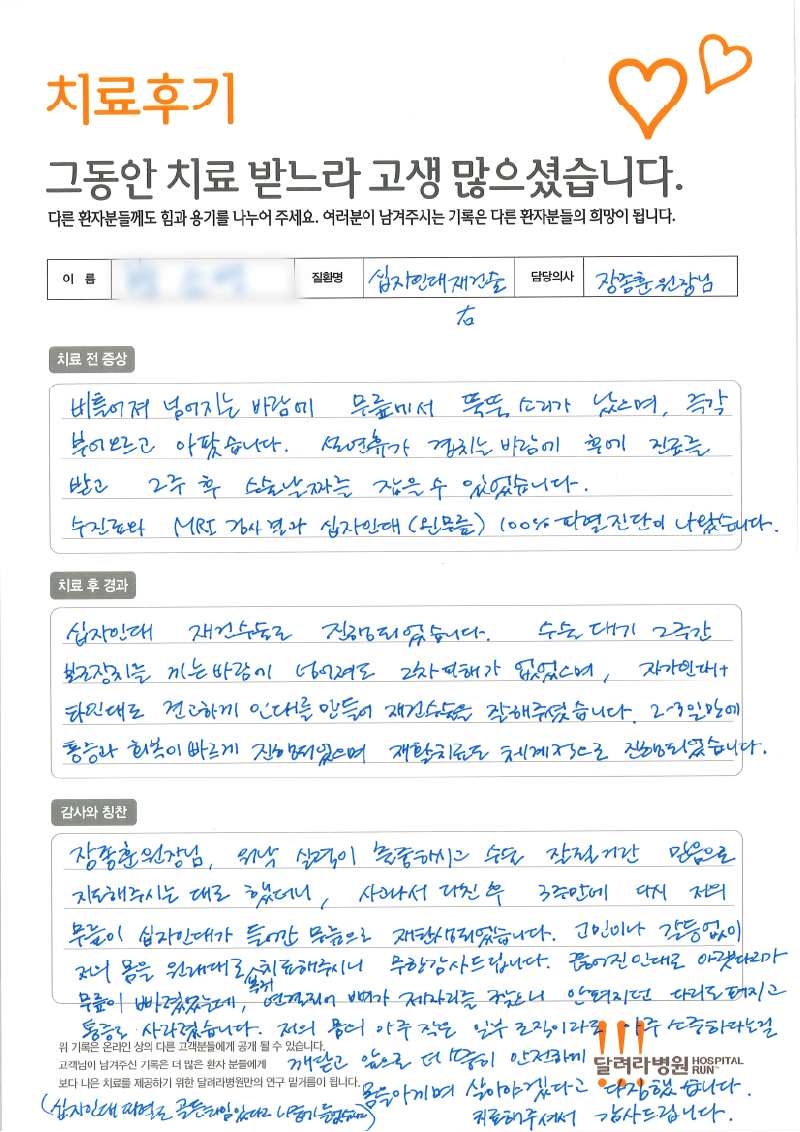 치료후기
그동안 치료 받느라 고생 많으셨습니다.
다른 환자분들께도 힘과 용기를 나누어 주세요. 여러분이 남겨주시는 기록은 다른 환자분들의 희망이 됩니다.
이 름 질환명 십자인대재건술 담당의사 장종훈원장님
右
치료 전 증상
버틀어져 넘어지는 바람에 무릎에서 뚝뚝 소리가 났으며, 즉각
부어오르고 아팠습니다. 설연휴가 겹치는 바람에 후에 진료를
받고 2주 후 수술날짜를 잡을 수 있었습니다.
수진료와 MRI 검사결과 십자인대(왼무릎) 100% 파열진단이 나왔습니다.
치료 후 경과
십자인대 재건수술로 진행되었습니다. 수술 대기 2주간
보조장치를 끼는바람에 넘어져도 2차피해가 없었으며, 자가인대+
타인대로 견고하게 인대를 만들어 재건수술을 잘해주셨습니다. 2-3일만에
통증과 회복이 빠르게 진행되었으며 재활치료도 체계적으로 진행되었습니다.
감사와 칭찬
장종훈원장님, 워낙 실력이 출중하시고 수술 잘될거란 믿음으로
지도해주시는 대로 했더니, 사고나서 다친 후 3주만에 다시 저의
무릎이 십자인대가 튼어간 무릎으로 재탄생되었습니다. 고민이나 갈등없이
저의 몸을 원래대로 치료해주시니 무한감사드립니다. 끊어진인대로 아랫다리가
무릎이 빠졌었는데, 붙여 연결되어 뼈가 제자리를 찾으니 안펴지던 다리도 펴지고
통증도 사라졌습니다. 저의 몸의 아주 작은 일부 조직이라도 아주 소중하다는걸
위 기록은 온라인 상의 다른 고객분들에게 공개 될 수 있습니다.
고객님이 남겨주신 기록은 더 많은 환자 분들에게 깨닫고 앞으로 더 안전하게
달려라병원 HOSPITAL RUN™
보다 나은 치료를 제공하기 위한 달려라병원만의 연구 밑거름이 됩니다. 몸을아끼며 살아야겠다고 다짐했습니다.
(십자인대 파열도 골든타임있다고 나중에 들었습니다) 치료해주셔서 감사드립니다.